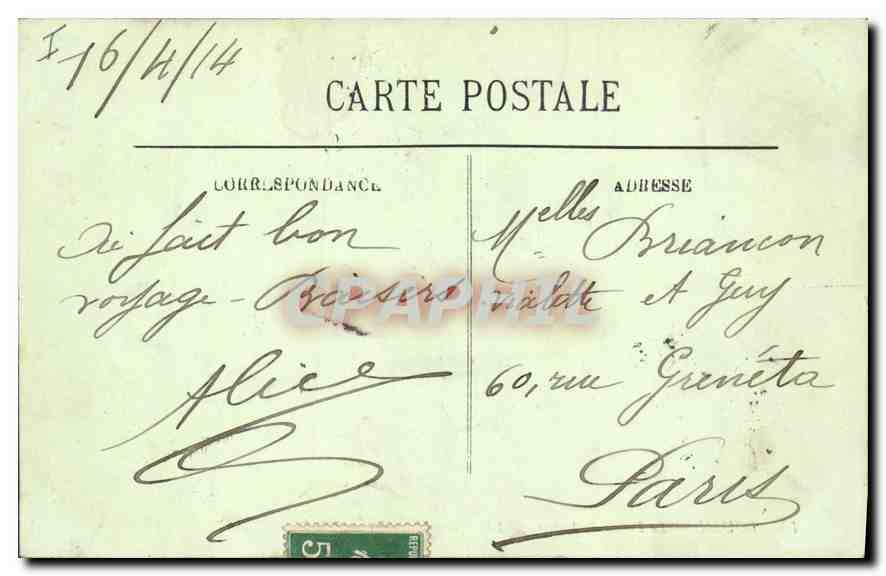 I 16/4/14
CARTE POSTALE
CORRESPONDANCE
Ai fait bon
voyage - Baisers
Alice
ADRESSE
Melles Briançon
et Guy
60, rue Grenéta
Paris
CPAPHIL
5
REPU